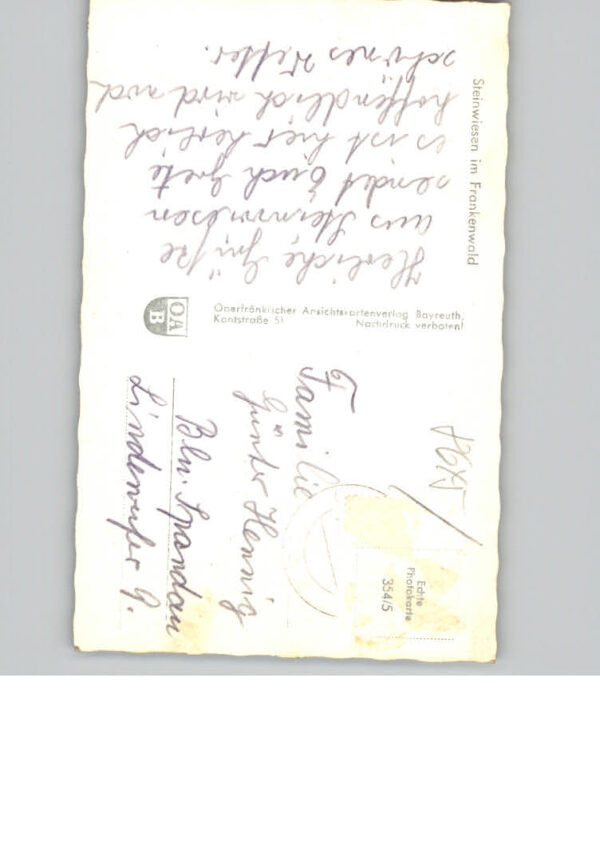 Steinwiesen im Frankenwald
Herzliche Grüße
aus Steinwiesen
sendet Euch Grete
es ist hier herrlich
hoffendlich wird noch
schönes Wetter.
Oberfränkischer Ansichtskartenverlag Bayreuth,
Kantstraße 51 Nachdruck verboten!
OA
B
Echte
Photokarte
354/5
Familie
Günter Hennig
Bln. Spandau
Lindenufer 9.